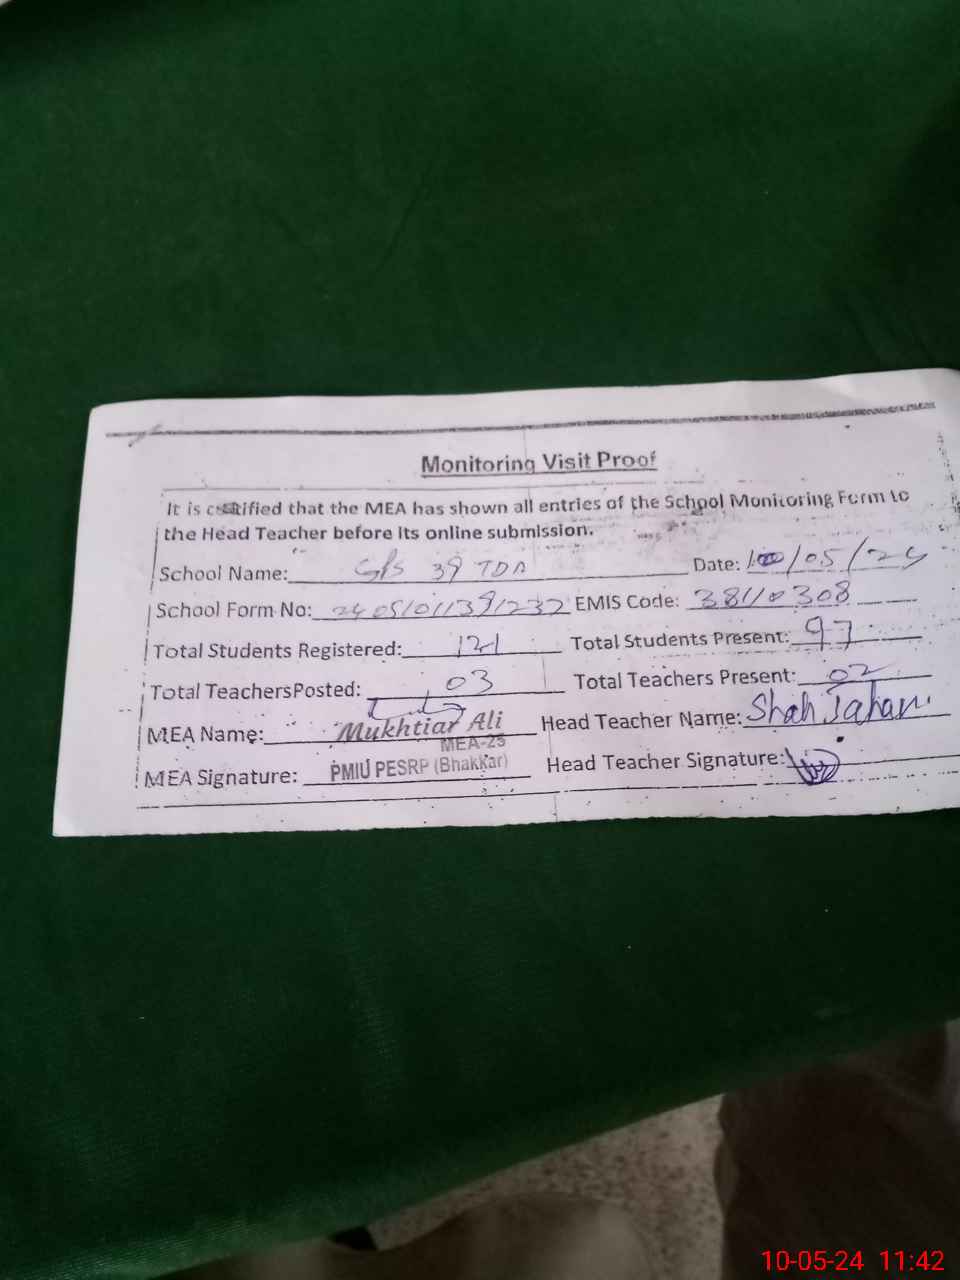 Monitoring Visit Proof
It is certified that the MEA has shown all entries of the School Monitoring Form to
the Head Teacher before its online submission.
School Name: GPS 39 TDA Date: 10/05/24
School Form No: EMIS Code: 38110308
Total Students Registered: 121 Total Students Present: 97
Total TeachersPosted: 03 Total Teachers Present: 02
MEA Name: Mukhtiar Ali Head Teacher Name: Shah Jahan
MEA-25
MEA Signature: PMIU PESRP (Bhakkar) Head Teacher Signature:
10-05-24 11:42